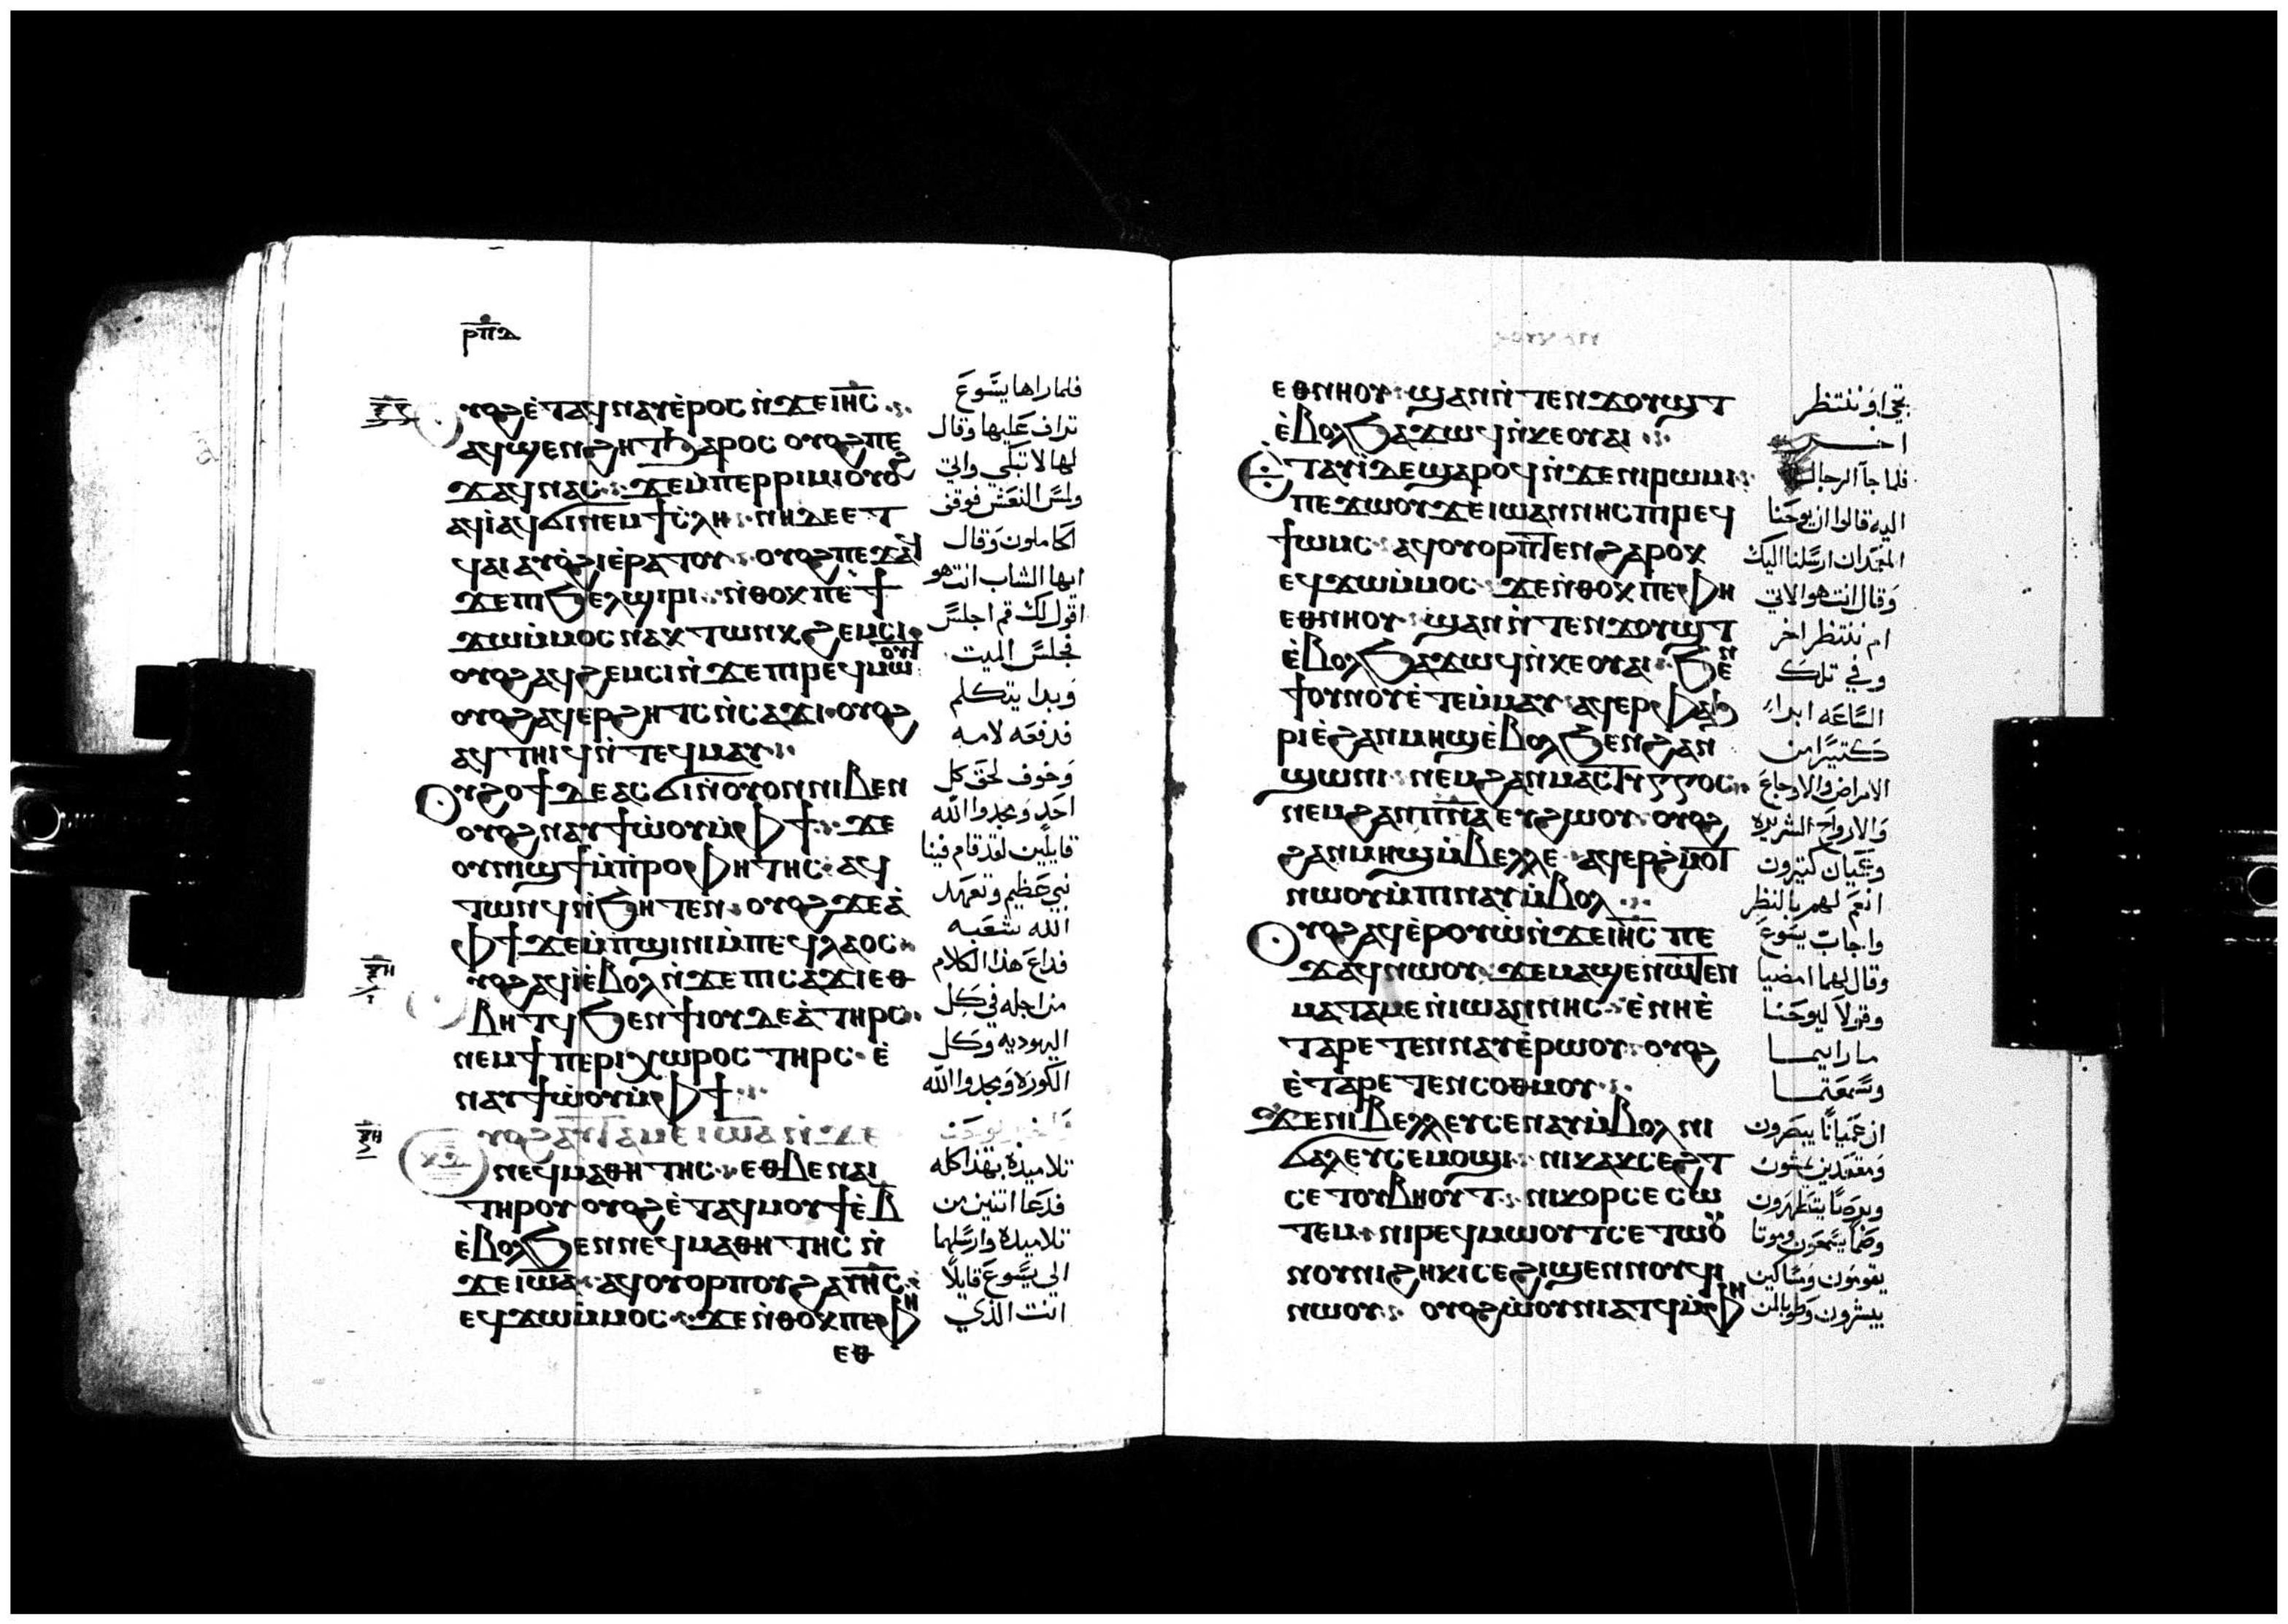 ⲣⲡⲇ
ⲟⲩⲟϩ ⲉ̀ⲧⲁϥⲛⲁⲩ ⲉ̀ⲣⲟⲥ ⲛ̀ϫⲉ ⲓⲏⲥ
ⲁϥϣⲉⲛϩⲏⲧ ϧⲁⲣⲟⲥ ⲟⲩⲟϩ ⲡⲉ
ϫⲁϥ ⲛⲁⲥ ϫⲉ ⲙ̀ⲡⲉⲣⲣⲓⲙⲓ ⲟⲩⲟϩ
ⲁϥⲓ̀ ⲁϥϭⲓ ⲛⲉⲙ ϯⲥ̀ⲗⲏ ⲛⲏ ⲇⲉ ⲉⲧ
ϥⲁⲓ ⲁⲩⲟ̀ϩⲓ ⲉ̀ⲣⲁⲧⲟⲩ ⲟⲩⲟϩ ⲡⲉϫⲁϥ
ϫⲉ ⲡⲓϧⲉⲗϣⲓⲣⲓ ⲛ̀ⲑⲟⲕ ⲡⲉ ϯ
ϫⲱ ⲙ̀ⲙⲟⲥ ⲛⲁⲕ ⲧⲱⲛⲕ ϩⲉⲙⲥⲓ
ⲟⲩⲟϩ ⲁϥϩⲉⲙⲥⲓ ⲛ̀ϫⲉ ⲡⲓⲣⲉϥⲙⲱⲟⲩⲧ
ⲟⲩⲟϩ ⲁϥⲉⲣϩⲏⲧⲥ ⲛ̀ⲥⲁϫⲓ ⲟⲩⲟϩ
ⲁϥⲧⲏⲓϥ ⲛ̀ⲧⲉϥⲙⲁⲩ
ⲟⲩϩⲟϯ ⲇⲉ ⲁⲥϭⲓ ⲛ̀ⲟⲩⲟⲛ ⲛⲓⲃⲉⲛ
ⲟⲩⲟϩ ⲛⲁⲩϯⲱ̀ⲟⲩ ⲙ̀ⲫϯ ϫⲉ
ⲟⲩⲛⲓϣϯ ⲙ̀ⲡⲣⲟⲫⲏⲧⲏⲥ ⲁϥ
ⲧⲱⲛϥ ⲛ̀ϧⲏⲧⲉⲛ ⲟⲩⲟϩ ϫⲉ ⲁ̀
ⲫϯ ϫⲉⲙⲡϣⲓⲛⲓ ⲙ̀ⲡⲉϥⲗⲁⲟⲥ
ⲟⲩⲟϩ ⲁϥⲓ̀ ⲉ̀ⲃⲟⲗ ⲛ̀ϫⲉ ⲡⲓⲥⲁϫⲓ ⲉⲑ
ⲃⲏⲧϥ ϧⲉⲛ ϯⲓⲟⲩⲇⲉⲁ̀ ⲧⲏⲣⲥ
ⲛⲉⲙ ϯⲡⲉⲣⲓⲭⲱⲣⲟⲥ ⲧⲏⲣⲥ ⲉ̀
ⲛⲁⲩϯⲱ̀ⲟⲩ ⲙ̀ⲫϯ
ⲟⲩⲟϩ ⲁⲩⲧⲁⲙⲉ ⲓⲱⲁ ⲛ̀ϫⲉ
ⲛⲉϥⲙⲁⲑⲏⲧⲏⲥ ⲉⲑⲃⲉ ⲛⲁⲓ
ⲧⲏⲣⲟⲩ ⲟⲩⲟϩ ⲉ̀ⲧⲁϥⲙⲟⲩϯ ⲉ̀ⲃ
ⲉ̀ⲃⲟⲗ ϧⲉⲛ ⲛⲉϥⲙⲁⲑⲏⲧⲏⲥ ⲛ̀
ϫⲉ ⲓⲱⲁ ⲁϥⲟⲩⲟⲣⲡⲟⲩ ϩⲁ ⲓⲏⲥ
ⲉϥϫⲱ ⲙ̀ⲙⲟⲥ ϫⲉ ⲛ̀ⲑⲟⲕ ⲡⲉ ⲫⲏ
ⲉⲑ
فلما راها يسوع
تراف عليها وقال
لها لا تبكي واتى
ولمس النعش فوقف
الحاملون وقال
ايها الشاب انت هو
اقول لك قم اجلس
فجلس الميت
وبدا يتكلم
فدفعه لامه
وخوف لحق كل
احد ومجدوا الله
قايلين لقد قام فينا
نبي عظيم وتعهد
الله شعبه
فذاع هذا الكلام
من اجله في كل
اليهوديه وكل
الكوره ومجدوا الله
تلاميذه بهذا كله
فدعا اتنين من
تلاميذه وارسلهما
الى يسوع قايلا
انت الذي
ⲉⲑⲛⲏⲟⲩ ϣⲁⲛ ⲛ̀ⲧⲉⲛϫⲟⲩϣⲧ
ⲉ̀ⲃⲟⲗ ϧⲁϫⲱϥ ⲛ̀ⲕⲉⲟⲩⲁⲓ
ⲉ̀ⲧⲁⲩⲓ̀ ⲇⲉ ϣⲁⲣⲟϥ ⲛ̀ϫⲉ ⲛⲓⲣⲱⲙⲓ
ⲡⲉϫⲱⲟⲩ ϫⲉ ⲓⲱⲁⲛⲛⲏⲥ ⲡⲓⲣⲉϥ
ϯⲱⲙⲥ ⲁϥⲟⲩⲟⲣⲡⲧⲉⲛ ϩⲁⲣⲟⲕ
ⲉϥϫⲱ ⲙ̀ⲙⲟⲥ ϫⲉ ⲛ̀ⲑⲟⲕ ⲡⲉ ⲫⲏ
ⲉⲑⲛⲏⲟⲩ ϣⲁⲛ ⲛ̀ⲧⲉⲛϫⲟⲩϣⲧ
ⲉ̀ⲃⲟⲗ ϧⲁϫⲱϥ ⲛ̀ⲕⲉⲟⲩⲁⲓ ϧⲉⲛ
ϯⲟⲩⲛⲟⲩ ⲉ̀ⲧⲉⲙ̀ⲙⲁⲩ ⲁϥⲉⲣⲫⲁϧ
ⲣⲓ ⲉ̀ϩⲁⲛⲙⲏϣ ⲉ̀ⲃⲟⲗ ϧⲉⲛ ϩⲁⲛ
ϣⲱⲛⲓ ⲛⲉⲙ ϩⲁⲛⲙⲁⲥⲧⲓⲅⲅⲟⲥ
ⲛⲉⲙ ϩⲁⲛⲡⲛⲁ ⲉⲩϩⲱⲟⲩ ⲟⲩⲟϩ
ϩⲁⲛⲙⲏϣ ⲙ̀ⲃⲉⲗⲗⲉ ⲁϥⲉⲣϩ̀ⲙⲟⲧ
ⲛⲱⲟⲩ ⲙ̀ⲡⲓⲛⲁⲩ ⲙ̀ⲃⲟⲗ
ⲟⲩⲟϩ ⲁϥⲉ̀ⲣⲟⲩⲱ̀ ⲛ̀ϫⲉ ⲓⲏⲥ ⲡⲉ
ϫⲁϥ ⲛⲱⲟⲩ ϫⲉ ⲙⲁϣⲉⲛⲱⲧⲉⲛ
ⲙⲁⲧⲁⲙⲉ ⲛ̀ⲓⲱⲁⲛⲛⲏⲥ ⲉ̀ⲛⲏ ⲉ̀
ⲧⲁⲣⲉⲧⲉⲛⲛⲁⲩ ⲉ̀ⲣⲱⲟⲩ ⲟⲩⲟϩ
ⲉ̀ⲧⲁⲣⲉⲧⲉⲛⲥⲟⲑⲙⲟⲩ
ϫⲉ ⲛⲓⲃⲉⲗⲗⲉⲩ ⲥⲉⲛⲁⲩ ⲙ̀ⲃⲟⲗ ⲛⲓ
ϭⲁⲗⲉⲩ ⲥⲉⲙⲟϣⲓ ⲛⲓⲕⲁⲕⲥⲉϩⲧ
ⲥⲉⲧⲟⲩⲃⲏⲟⲩⲧ ⲛⲓⲕⲟⲩⲣ ⲥⲉⲥⲱ
ⲧⲉⲙ ⲛⲓⲣⲉϥⲙⲱⲟⲩⲧ ⲥⲉⲧⲱⲟⲩ
ⲛⲟⲩ ⲛⲓϩⲏⲕⲓ ⲥⲉϩⲓϣⲉⲛⲛⲟⲩϥⲓ
ⲛⲱⲟⲩ ⲟⲩⲟϩ ⲱ̀ⲟⲩⲛⲓⲁⲧϥ ⲙ̀ⲫⲏ
يجي او ننتظر
اخر
فلما جا الرجال
اليه قالوا ان يوحنا
المعمدان ارسلنا اليك
وقال انت هو الاتي
ام ننتظر اخر
وفي تلك
الساعه ابرا
كتيرا من
الامراض والاوجاع
والارواح الشريره
وعميان كتيرون
انعم لهم بالنظر
واجاب يسوع
وقال لهما امضيا
وقولا ليوحنا
ما رايتما
وسمعتما
ان عميانا يبصرون
ومقعدين يمشون
وبرصا يتطهرون
وصما يسمعون وموتا
يقومون ومساكين
يبشرون وطوبا لمن